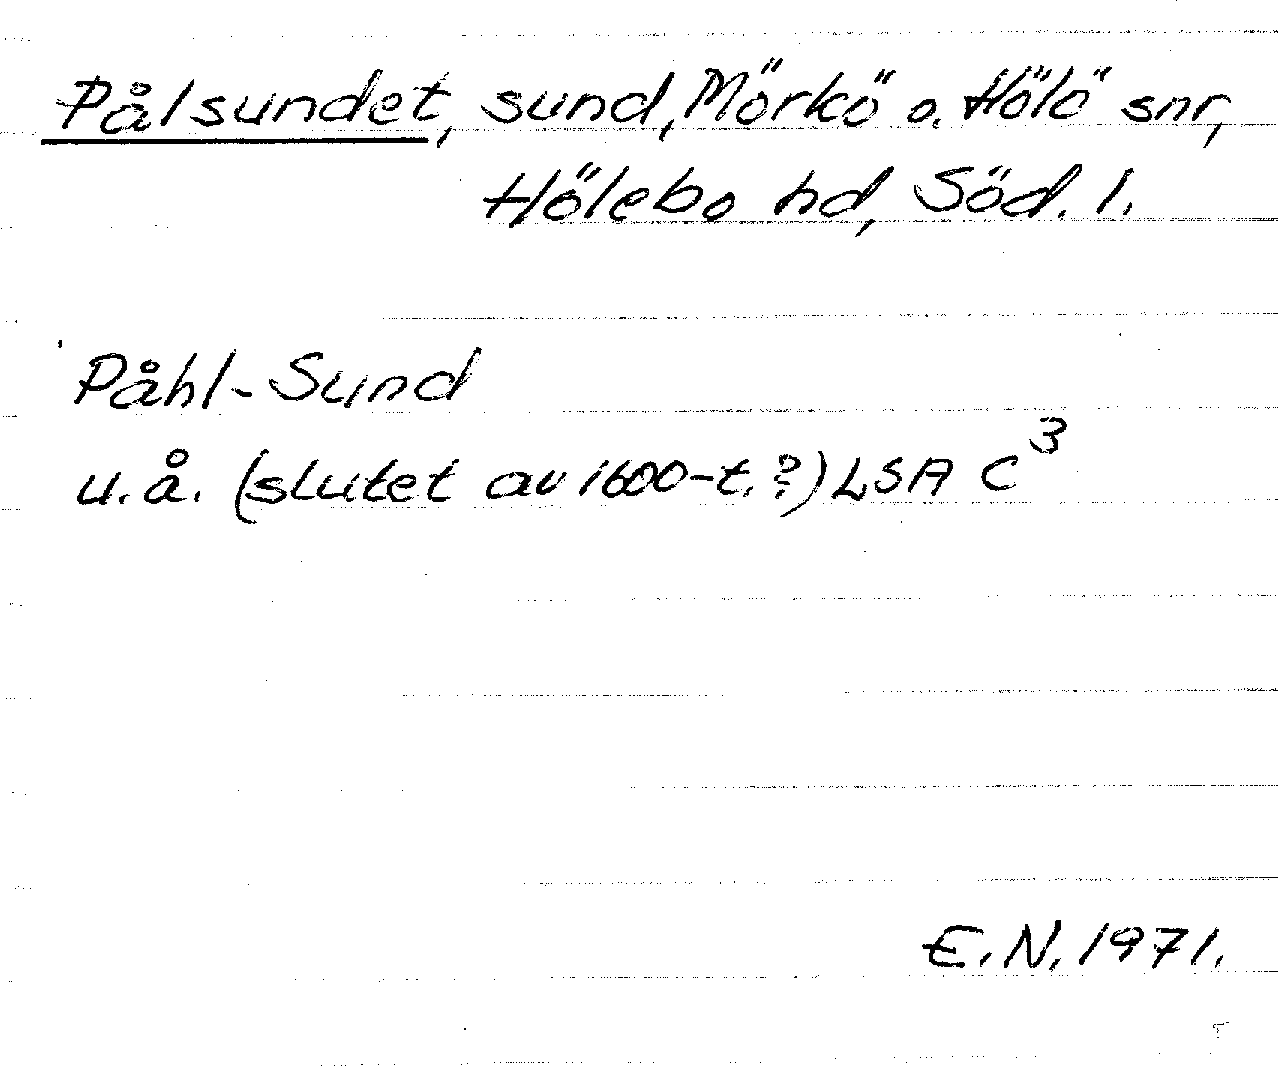 Pålsundet, sund, Mörkö o. Hölö snr,
Hölebo hd, Söd. l.
Påhl-Sund
u.å. (slutet av 1600-t.?) LSA C³
E.N. 1971.